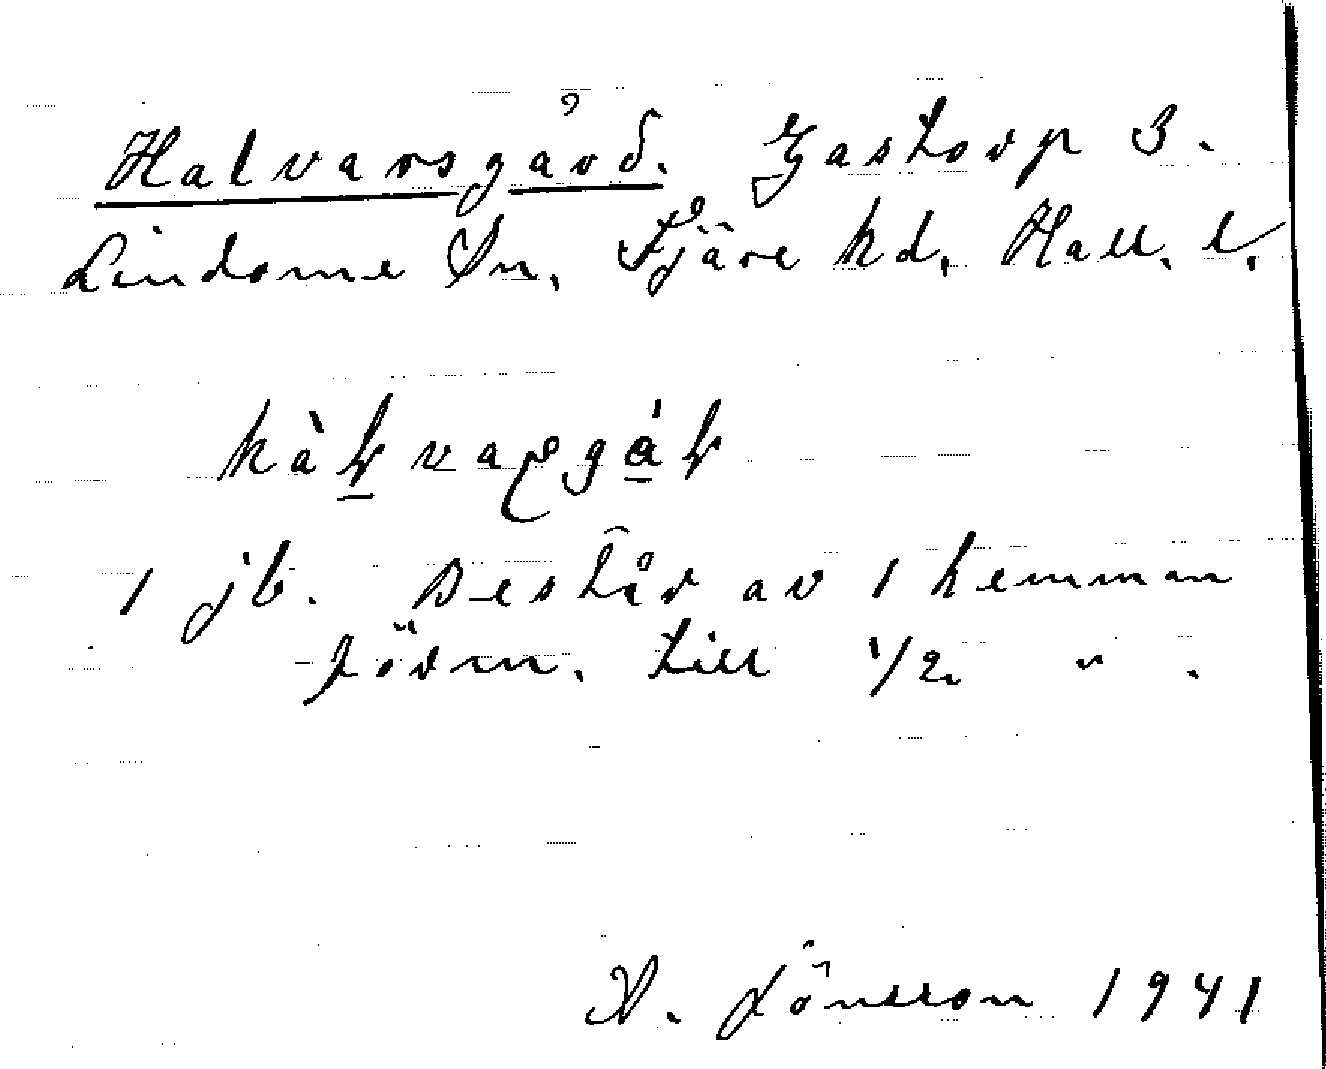 Halvarsgård. Gastorp 3.
Lindome Sn. Fjäre hd. Hall. l.
1 jb. Består av 1 hemman
förm. till 1/2 " .
A. Jönsson 1941